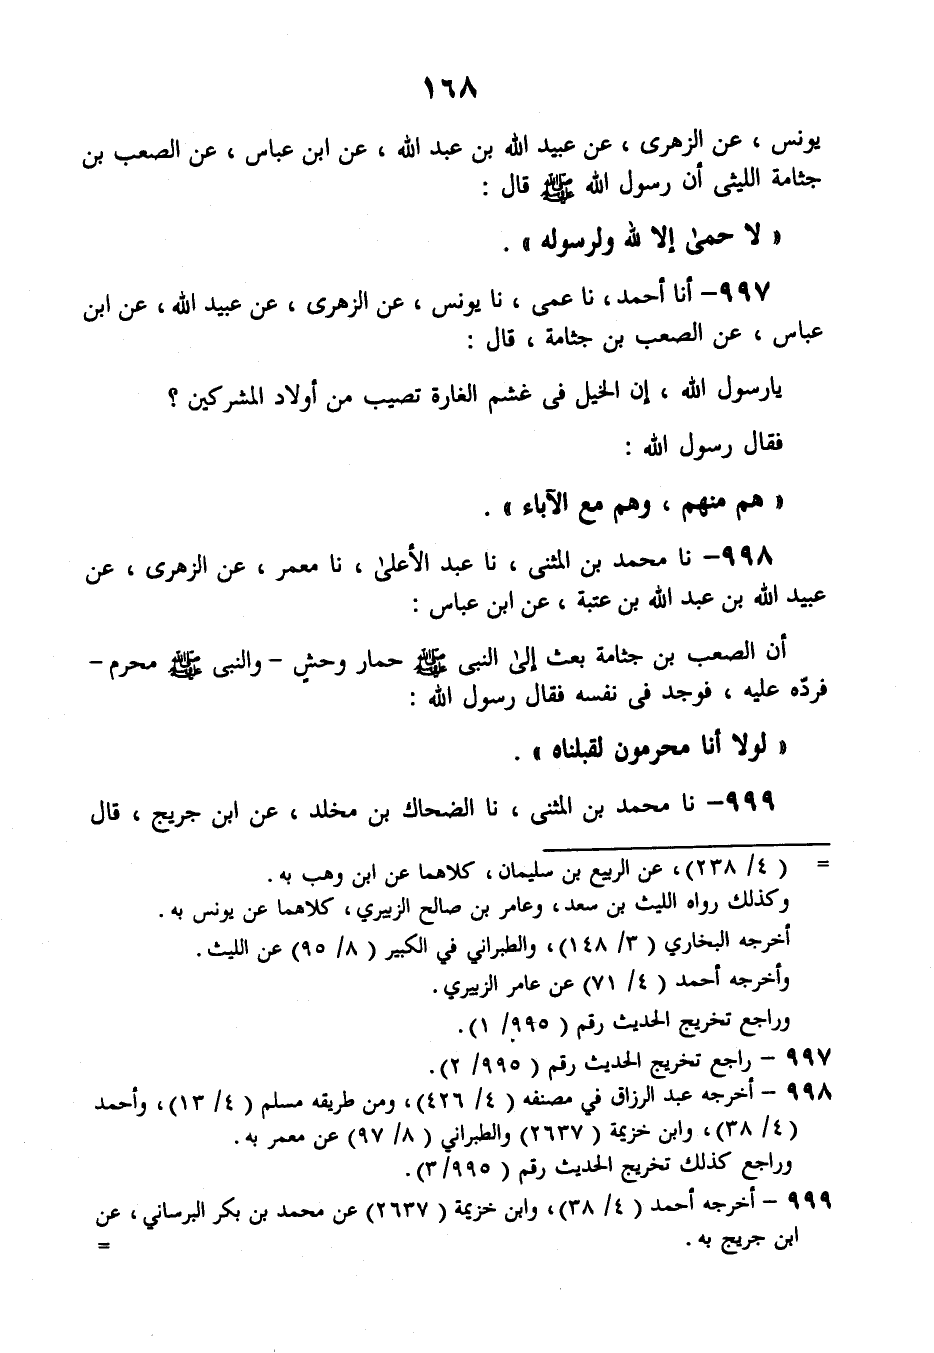 ١٦٨
يونس ، عن الزهرى ، عن عبيد الله بن عبد الله ، عن ابن عباس ، عن الصعب بن
جثامة الليثى أن رسول الله ﷺ قال :
« لا حمىٰ إلا لله ولرسوله » .
٩٩٧– أنا أحمد، نا عمى ، نا يونس ، عن الزهرى ، عن عبيد الله ، عن ابن
عباس ، عن الصعب بن جثامة ، قال :
يارسول الله ، إن الخيل فى غشم الغارة تصيب من أولاد المشركين ؟
فقال رسول الله :
« هم منهم ، وهم مع الآباء » .
٩٩٨– نا محمد بن المثنى ، نا عبد الأعلىٰ ، نا معمر ، عن الزهرى ، عن
عبيد الله بن عبد الله بن عتبة ، عن ابن عباس :
أن الصعب بن جثامة بعث إلىٰ النبى ﷺ حمار وحشٍ – والنبى ﷺ محرم –
فردّه عليه ، فوجد فى نفسه فقال رسول الله :
« لولا أنا محرمون لقبلناه » .
٩٩٩– نا محمد بن المثنى ، نا الضحاك بن مخلد ، عن ابن جريج ، قال
= ( ٤/ ٢٣٨)، عن الربيع بن سليمان، كلاهما عن ابن وهب به.
وكذلك رواه الليث بن سعد، وعامر بن صالح الزبيري، كلاهما عن يونس به.
أخرجه البخاري ( ٣/ ١٤٨)، والطبراني في الكبير ( ٨/ ٩٥) عن الليث.
وأخرجه أحمد ( ٤/ ٧١) عن عامر الزبيري.
وراجع تخريج الحديث رقم ( ٩٩٥/ ١).
٩٩٧ – راجع تخريج الحديث رقم ( ٩٩٥/ ٢).
٩٩٨ – أخرجه عبد الرزاق في مصنفه ( ٤/ ٤٢٦)، ومن طريقه مسلم ( ٤/ ١٣)، وأحمد
( ٤/ ٣٨)، وابن خزيمة ( ٢٦٣٧) والطبراني ( ٨/ ٩٧) عن معمر به.
وراجع كذلك تخريج الحديث رقم ( ٩٩٥/ ٣).
٩٩٩ – أخرجه أحمد ( ٤/ ٣٨)، وابن خزيمة ( ٢٦٣٧) عن محمد بن بكر البرساني، عن
ابن جريج به. =